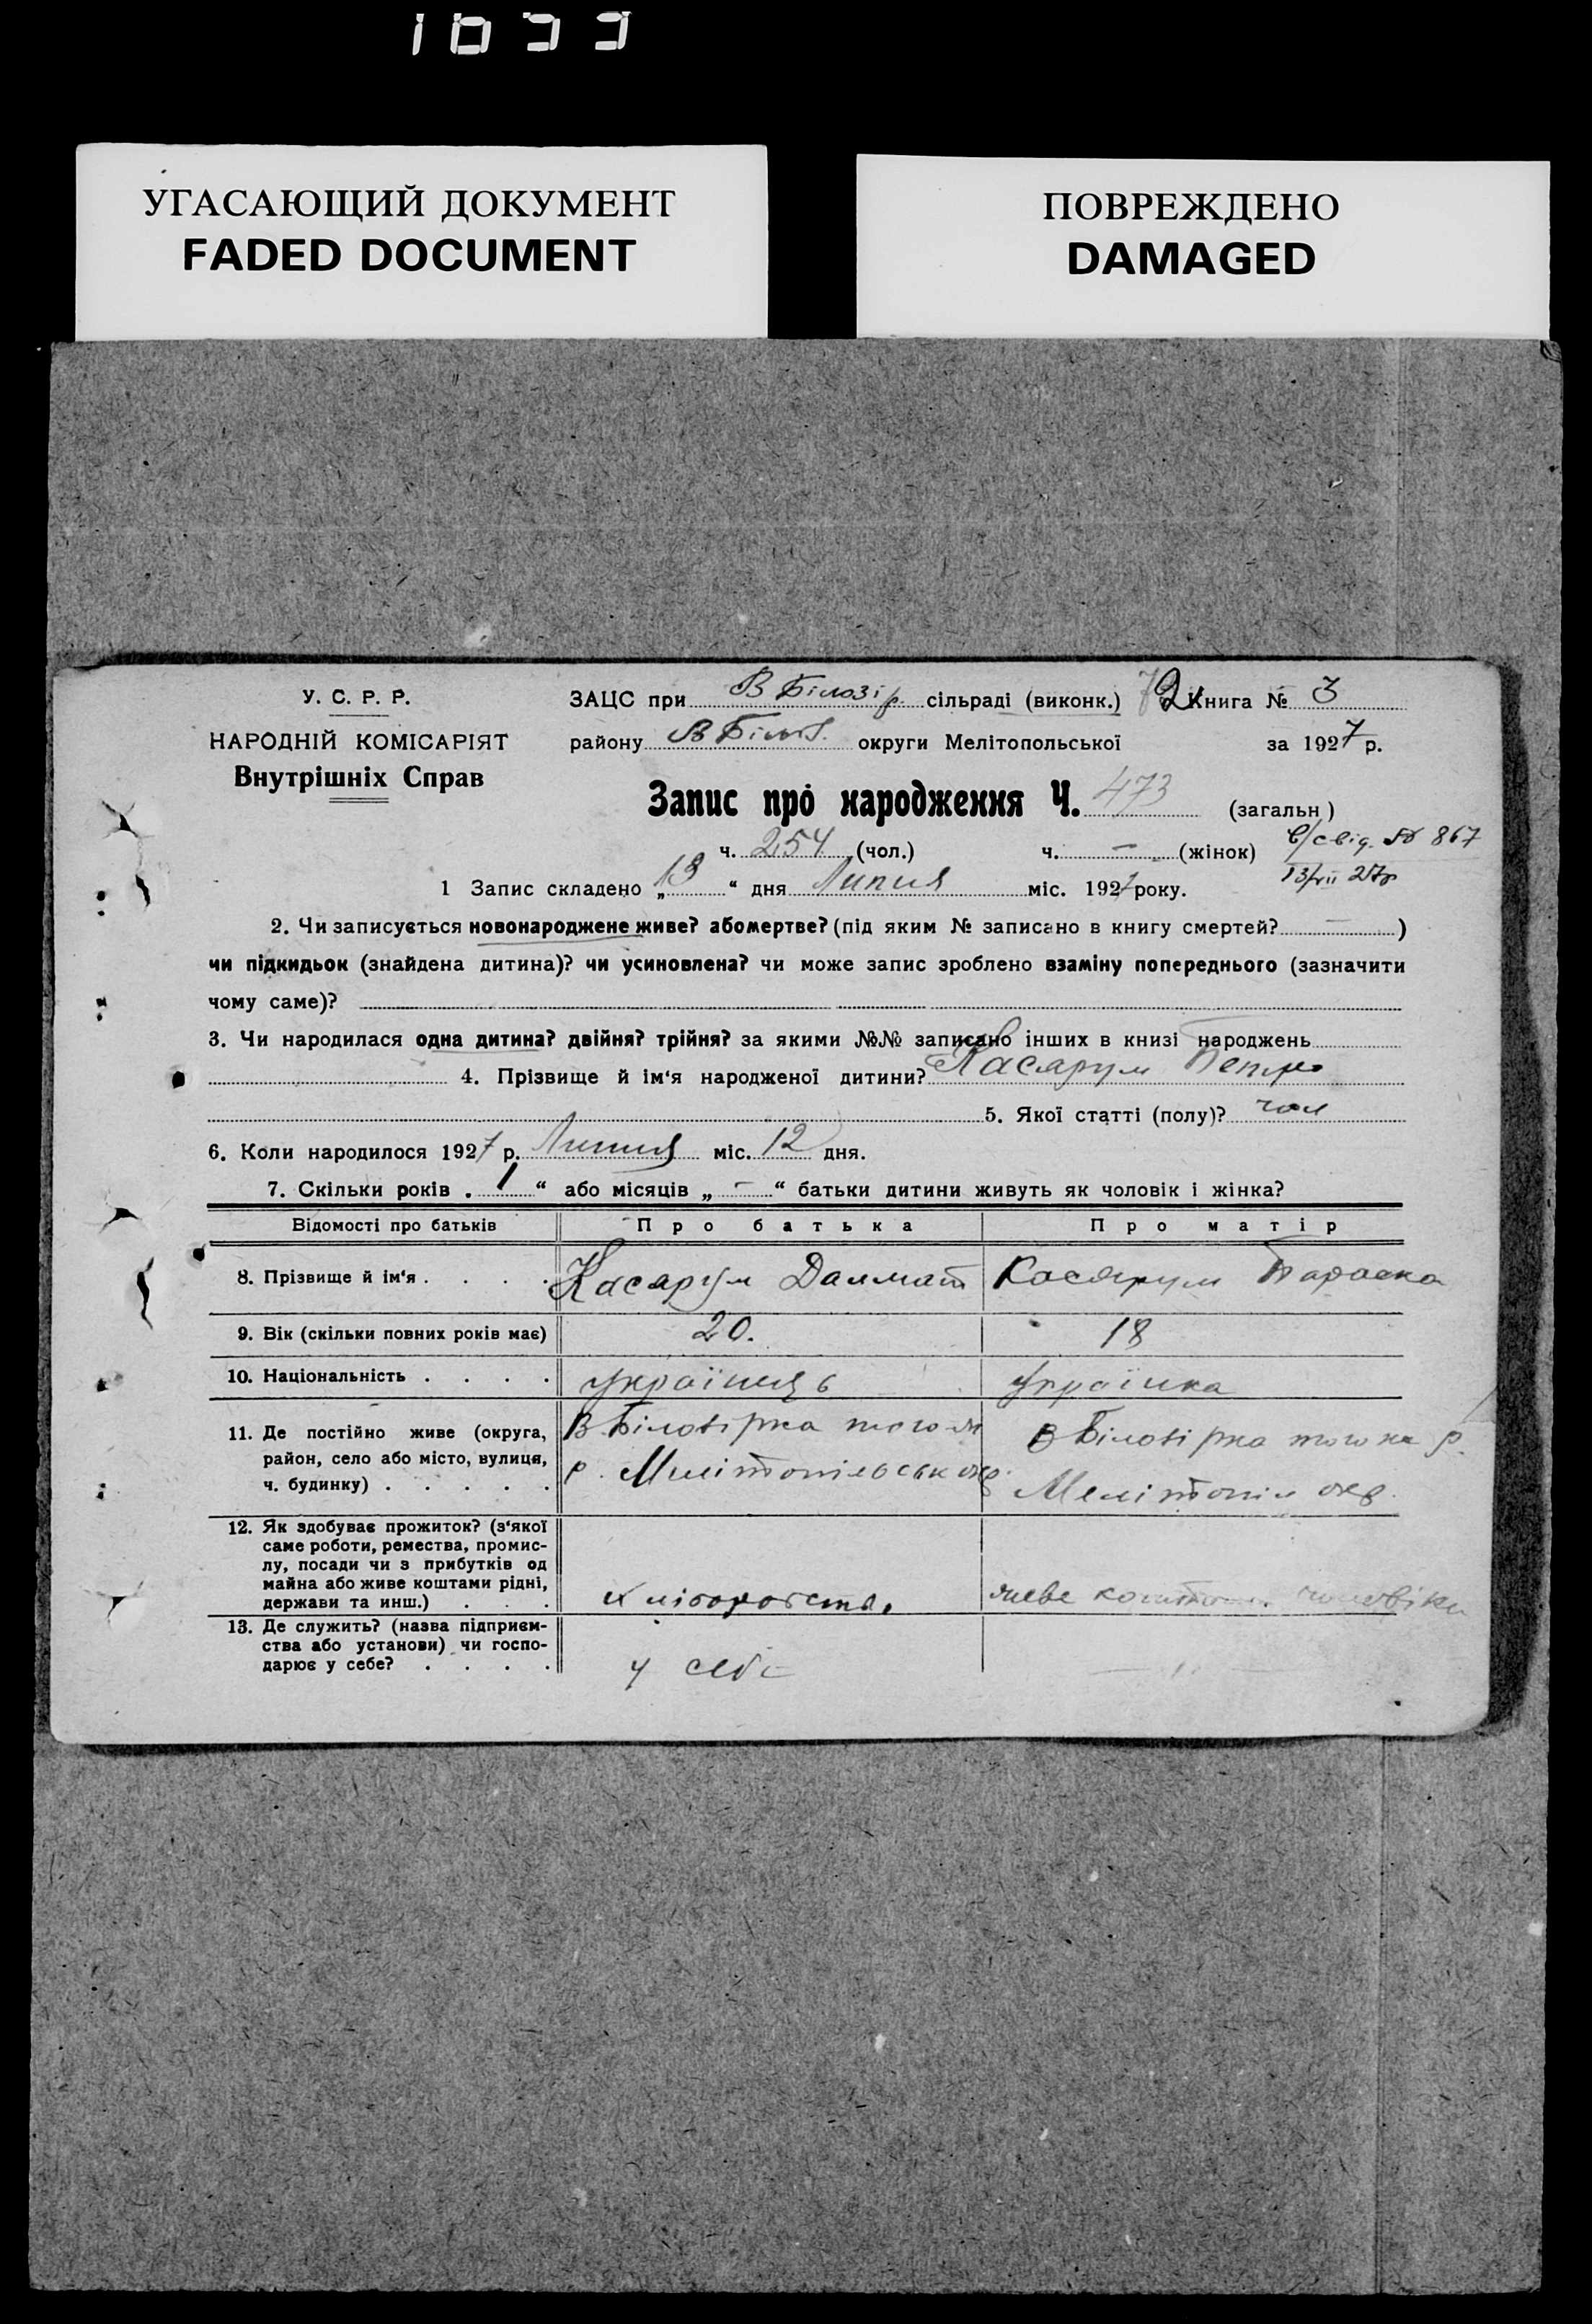 1633
УГАСАЮЩИЙ ДОКУМЕНТ
FADED DOCUMENT
ПОВРЕЖДЕНО
DAMAGED
У. С. Р. Р.
НАРОДНІЙ КОМІСАРІЯТ
Внутрішніх Справ
ЗАЦС при В Білозір. сільраді (виконк.) Книга № 3
району В Біло округи Мелітопольської за 1927 р.
Запис про народження Ч. 473 (загальн)
ч. 254 (чол.) ч. — (жінок) в/свід. № 867
1 Запис складено „13“ дня Липня міс. 1927 року. 13/VII 27р
2. Чи записується новонароджене живе? або мертве? (під яким № записано в книгу смертей? — )
чи підкидьок (знайдена дитина)? чи усиновлена? чи може запис зроблено взаміну попереднього (зазначити
чому саме)?
3. Чи народилася одна дитина? двійня? трійня? за якими №№ записано інших в книзі народжень
4. Прізвище й ім‘я народженої дитини? Касарум Петро
5. Якої статті (полу)? чол
6. Коли народилося 1927 р. Липня міс. 12 дня.
7. Скільки років „1“ або місяців „-“ батьки дитини живуть як чоловік і жінка?
Відомості про батьків Про батька Про матір
8. Прізвище й ім‘я . . . . Касарум Далмат Касярум Параска
9. Вік (скільки повних років має) 20. 18
10. Національність . . . . українець українка
11. Де постійно живе (округа,
район, село або місто, вулиця,
ч. будинку) . . . . .
В Білозірка того ж
р. Мелітопільськ окр.
В Білозірка того ж р.
Мелітопіл окр.
12. Як здобуває прожиток? (з‘якої
саме роботи, ремества, промис-
лу, посади чи з прибутків од
майна або живе коштами рідні,
держави та инш.) . . .
хліборобство живе коштом чоловіка
13. Де служить? (назва підприєм-
ства або установи) чи госпо-
дарює у себе? . . . .
у себе — " —